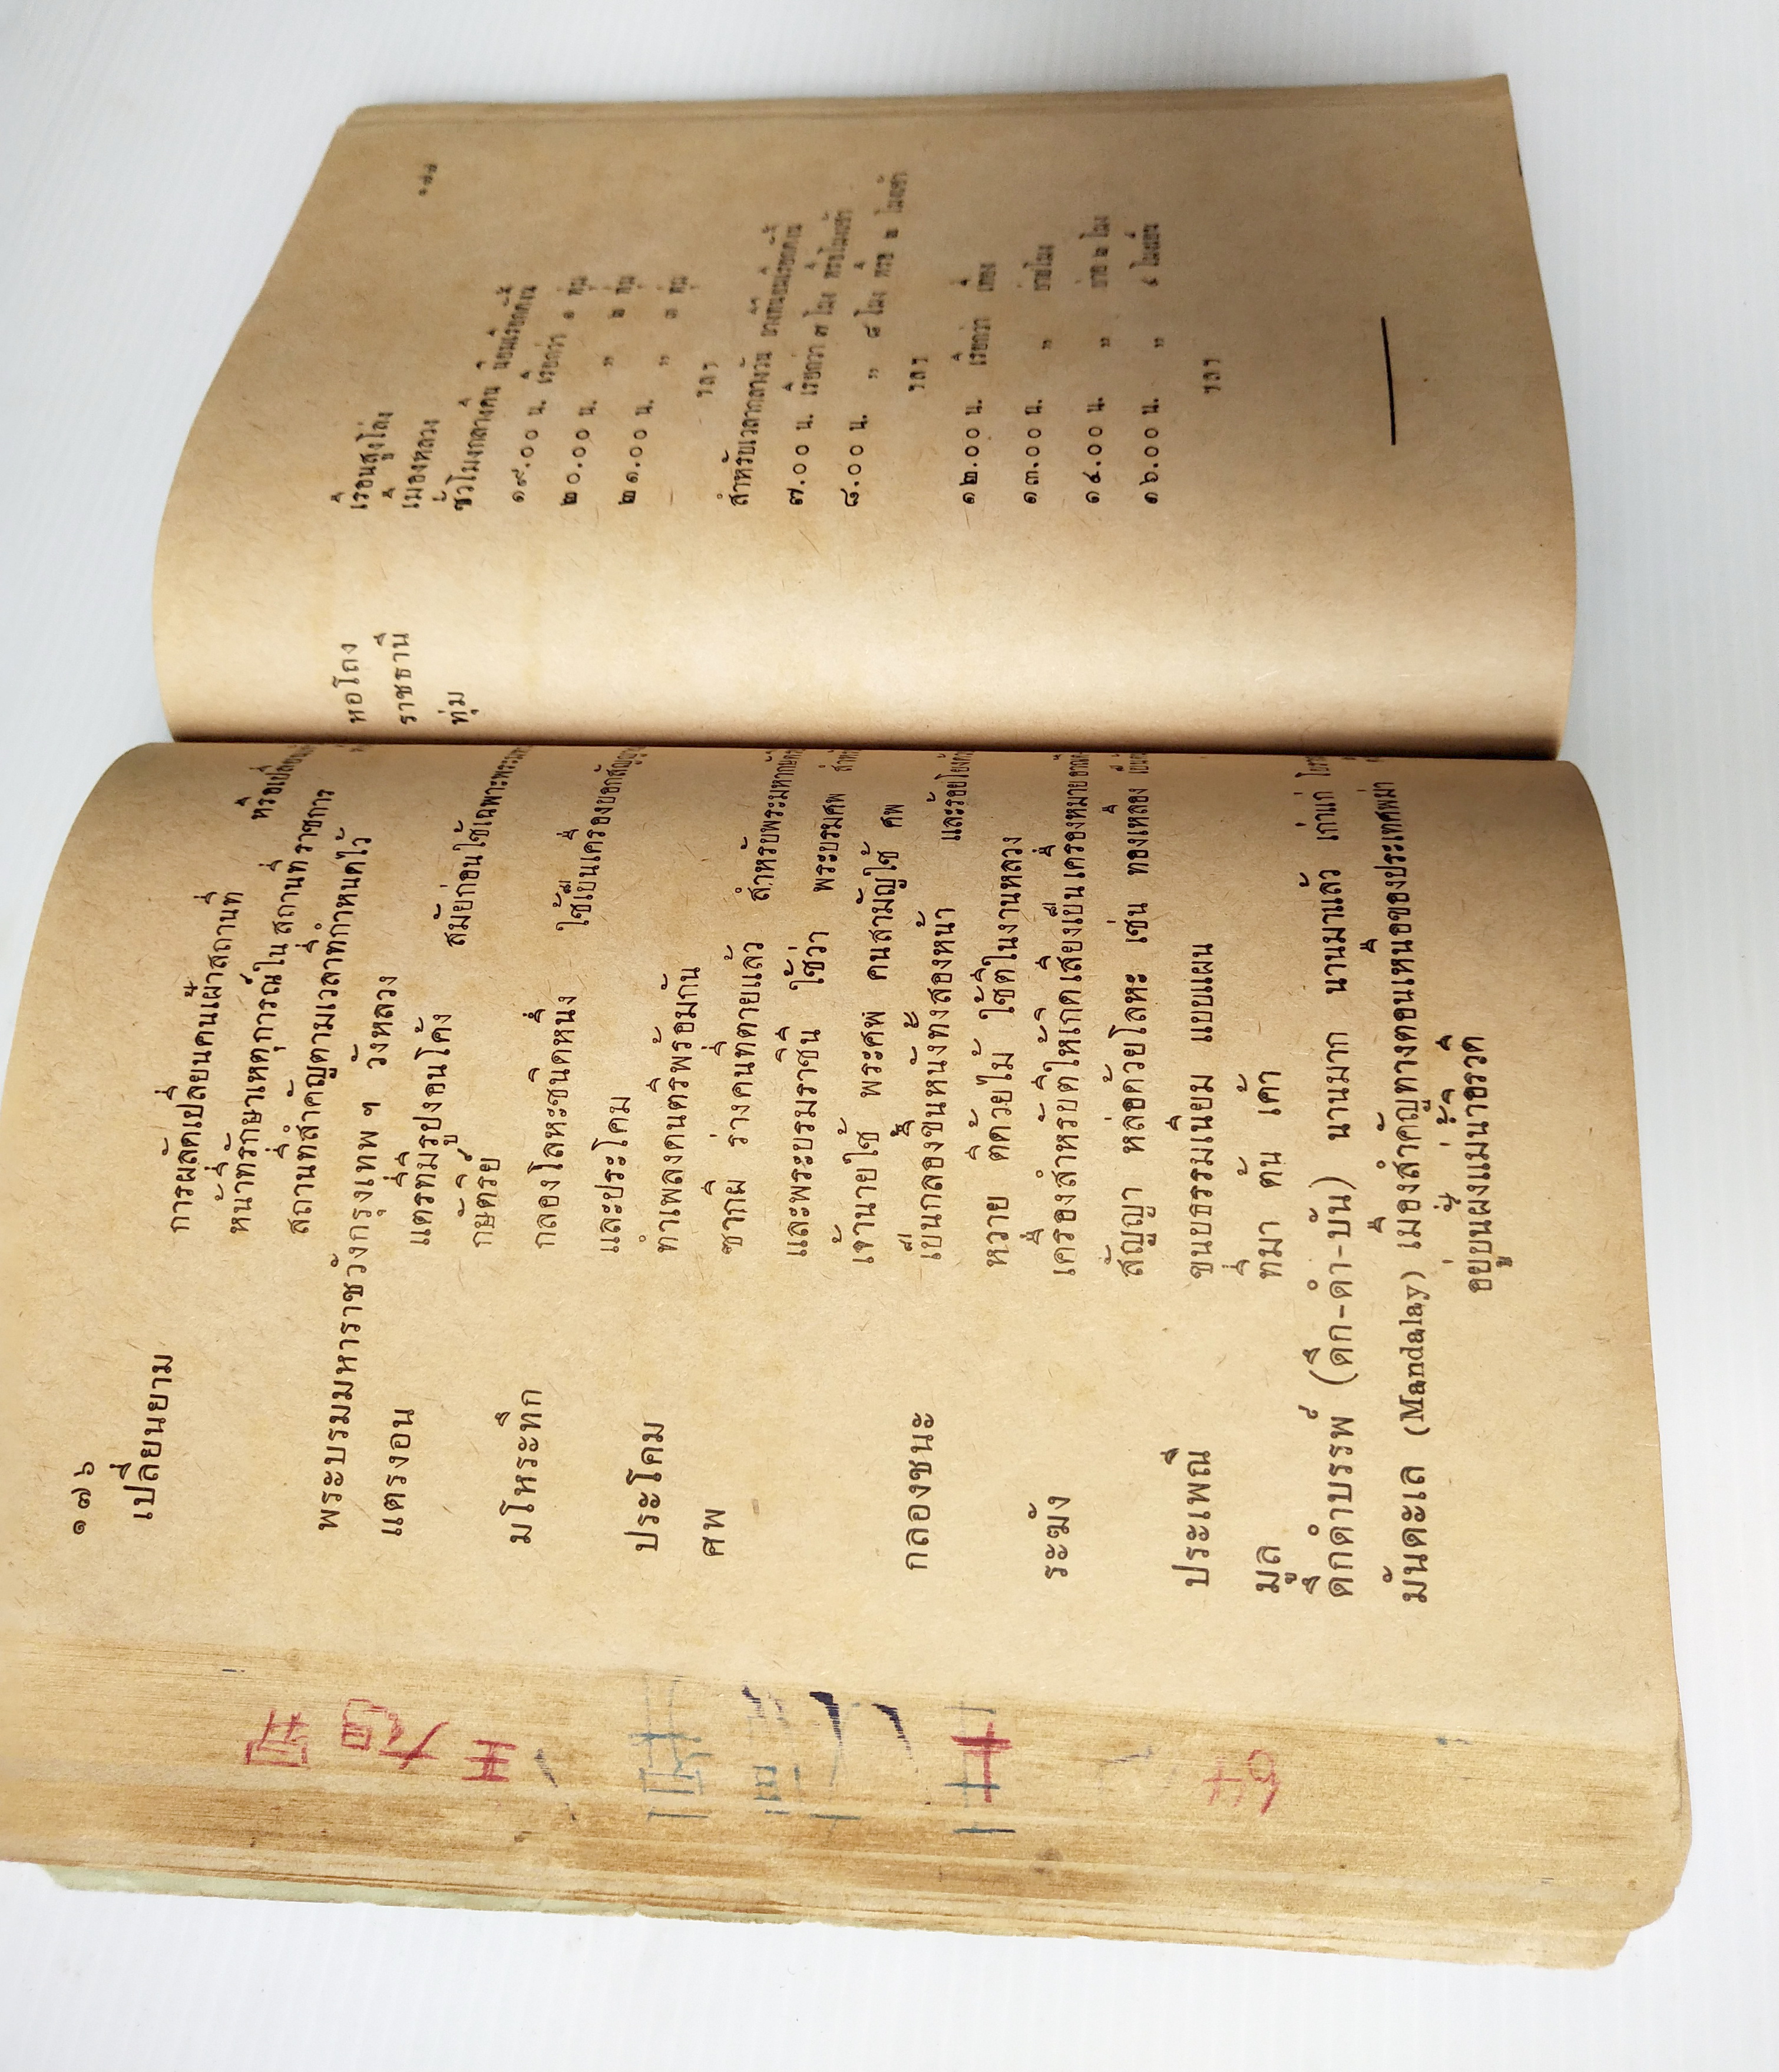 ๑๗๖
เปลี่ยนยาม การผลัดเปลี่ยนคนเฝ้าสถานที่ หรือเปลี่ยน
หน้าที่รักษาเหตุการณ์ใน สถานที่ราชการ
สถานที่สำคัญตามเวลาที่กำหนดไว้
พระบรมมหาราชวังกรุงเทพ ฯ วังหลวง
แตรงอน แตรที่มีรูปงอนโค้ง สมัยก่อนใช้เฉพาะพระมหา
กษัตริย์
มโหระทึก กลองโลหะชนิดหนึ่ง ใช้ตีเป็นเครื่องบอกสัญญาณ
และประโคม
ประโคม ทำเพลงดนตรีพร้อมกัน
ศพ ซากผี ร่างคนที่ตายแล้ว สำหรับพระมหากษัตริย์
และพระบรมราชินี ใช้ว่า พระบรมศพ สำหรับ
เจ้านายใช้ พระศพ คนสามัญใช้ ศพ
กลองชนะ เป็นกลองขึ้นหนังทั้งสองหน้า และร้อยโยงด้วย
หวาย ตีด้วยไม้ ใช้ตีในงานหลวง
ระฆัง เครื่องสำหรับตีให้เกิดเสียงเป็นเครื่องหมาย
สัญญา หล่อด้วยโลหะ เช่น ทองเหลือง เป็นต้น
ประเพณี ขนบธรรมเนียม แบบแผน
มูล ที่มา ต้น เค้า
ดึกดำบรรพ์ (ดึก-ดำ-บัน) นานมาก นานมาแล้ว เก่าแก่
มันดะเล (Mandalay) เมืองสำคัญทางตอนเหนือของประเทศพม่า
อยู่บนฝั่งแม่น้ำอิรวดี
๑๗๗
หอโถง เรือนสูงโล่ง
ราชธานี เมืองหลวง
ทุ่ม ชั่วโมงกลางคืน นิยมเรียกดังนี้
๑๙.๐๐ น. เรียกว่า ๑ ทุ่ม
๒๐.๐๐ น. " ๒ ทุ่ม
๒๑.๐๐ น. " ๓ ทุ่ม
ฯลฯ
สำหรับเวลากลางวัน บางทีนิยมเรียกดังนี้
๗.๐๐ น. เรียกว่า ๗ โมง หรือโมงเช้า
๘.๐๐ น. " ๘ โมง หรือ ๒ โมงเช้า
ฯลฯ
๑๒.๐๐ น. เรียกว่า เที่ยง
๑๓.๐๐ น. " บ่ายโมง
๑๔.๐๐ น. " บ่าย ๒ โมง
๑๖.๐๐ น. " ๔ โมงเย็น
ฯลฯ